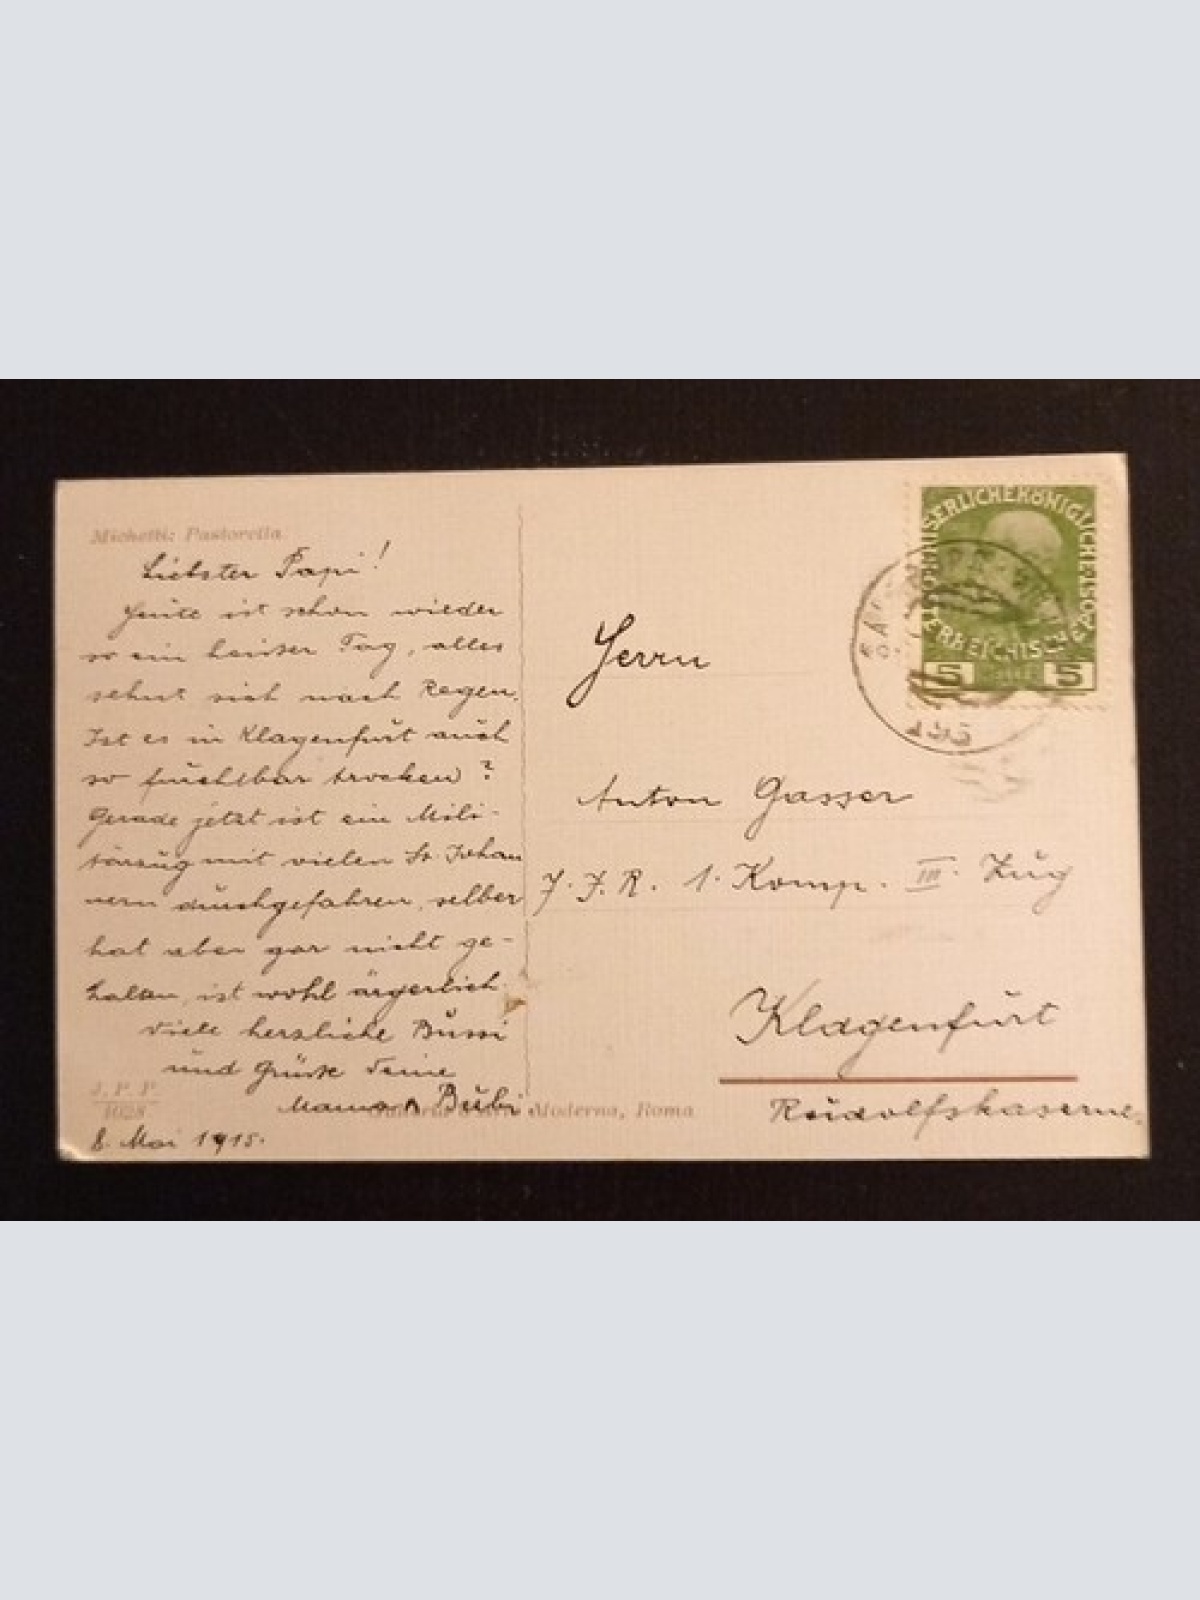 Michetti: Pastorella
Liebster Papi!
Heute ist schon wieder
so ein heisser Tag, alles
sehnt sich nach Regen.
Ist es in Klagenfurt auch
so furchtbar trocken?
Gerade jetzt ist ein Mili-
tärzug mit vielen St. Johan
nern durchgefahren, selber
hat aber gar nicht ge-
halten, ist wohl ärgerlich.
Viele herzliche Bussi
und Grüsse Deine
Mama Bubi.
8. Mai 1915.
J. P. P.
4028
Moderna, Roma
KAISERLICHE KÖNIGLICHE
ÖSTERREICHISCHE
5 5
Herrn
Anton Gasser
J. J. R. 1. Komp. III. Zug
Klagenfurt
Rudolfskaserne.